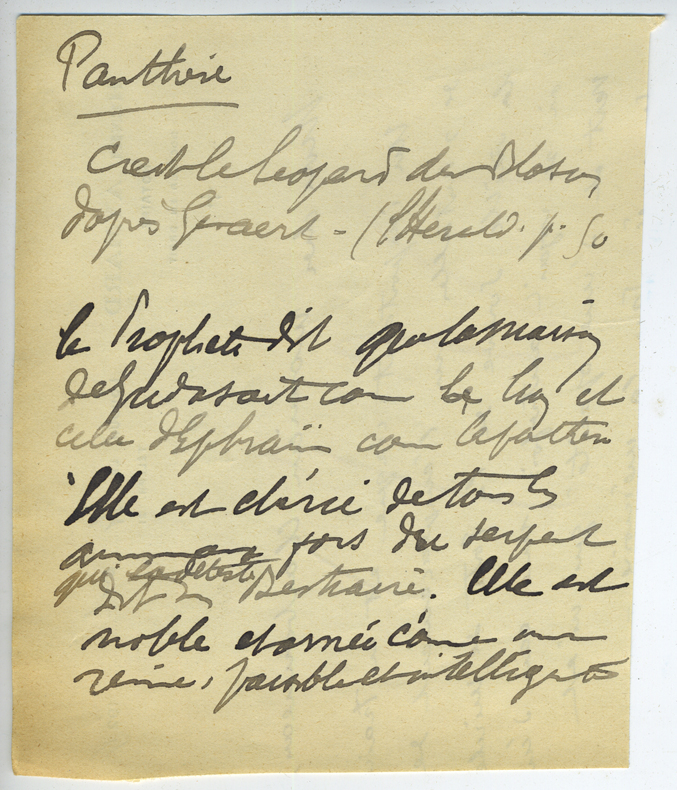 Panthère
C'est le Léopard du Blason
d'après Gevaert - (l'Herald. p. 50
le Prophète dit que la maison
de Juda sait com le lion et
celui d'Ephraïm com la panthère
Elle est chérie de tous les
animaux fors du serpent
qui la déteste
dit un Bestiaire. Elle est
noble et ornée come une
reine, paisible et intelligente